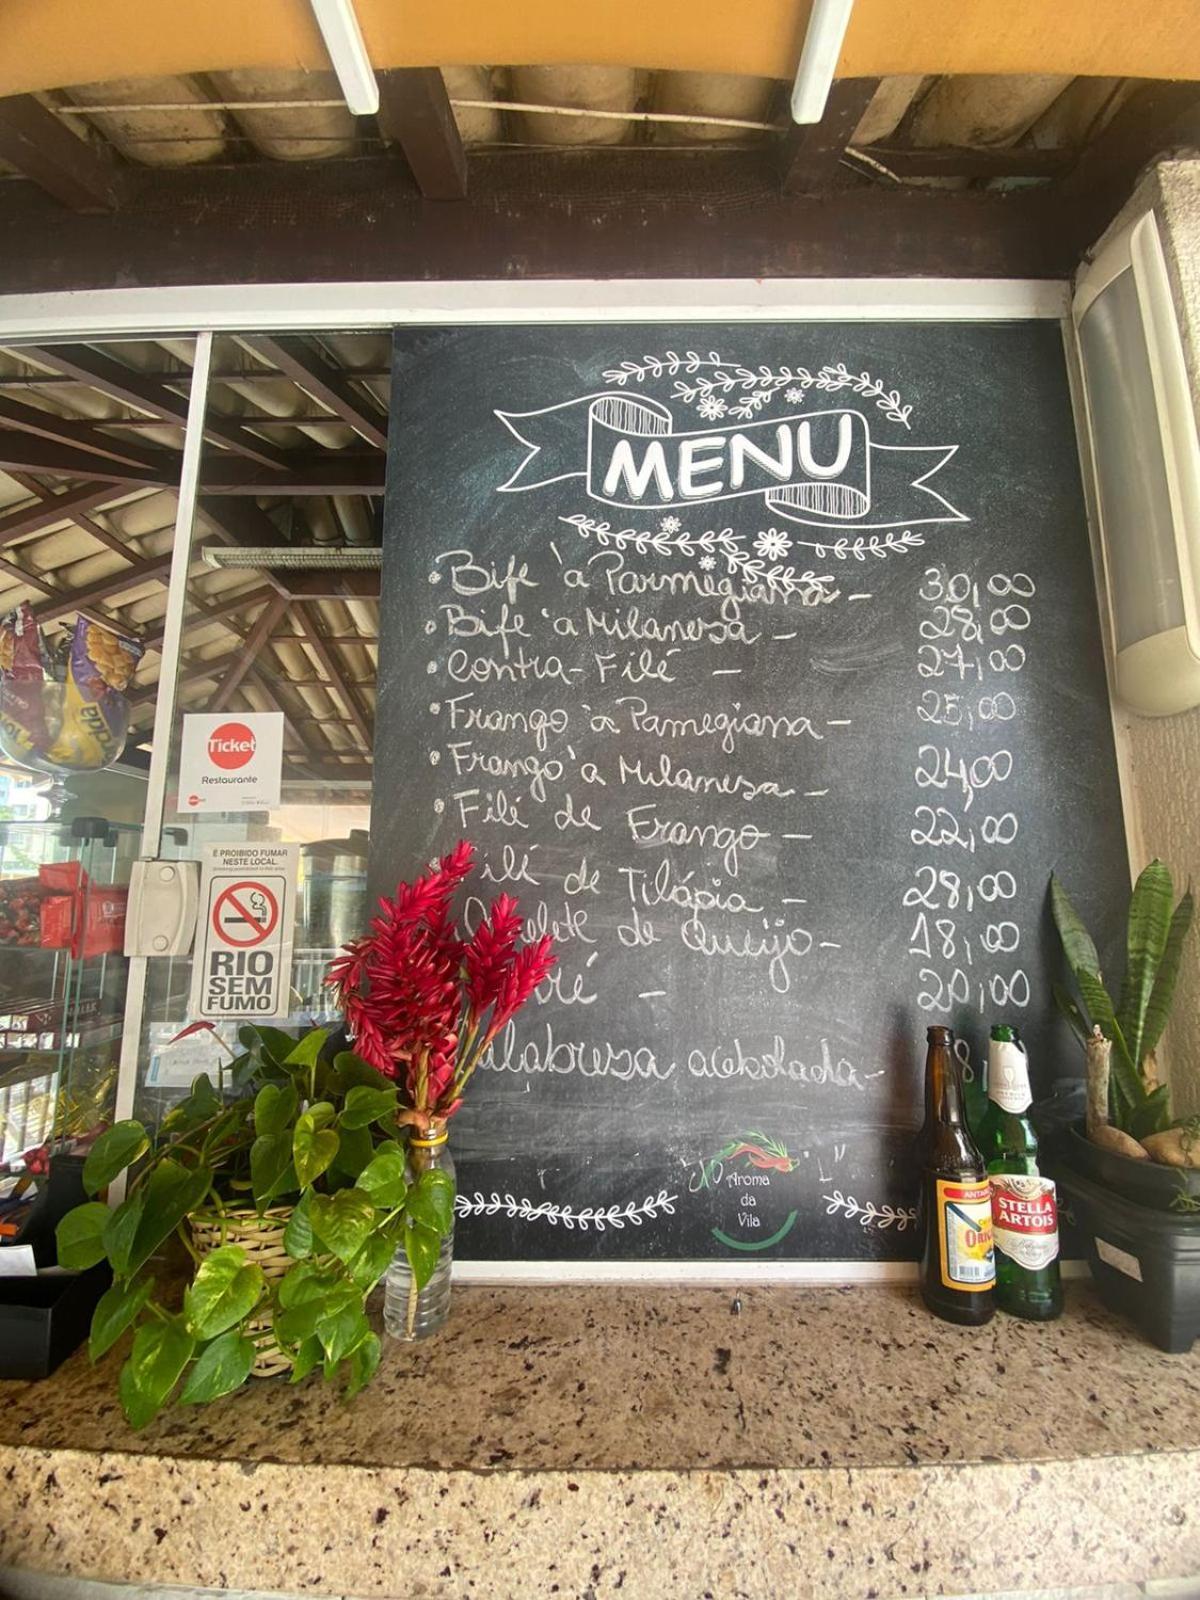 MENU
• Bife à Parmegiana - 30,00
• Bife à Milanesa - 28,00
• Contra-Filé - 27,00
• Frango à Pamegiana - 25,00
• Frango à Milanesa - 24,00
• Filé de Frango - 22,00
ilé de Tilápia - 28,00
elete de Queijo - 18,00
- 20,00
alabresa acebolada -
Aroma
da
Vila
Ticket
Restaurante
É PROIBIDO FUMAR
NESTE LOCAL.
RIO
SEM
FUMO
STELLA
ARTOIS